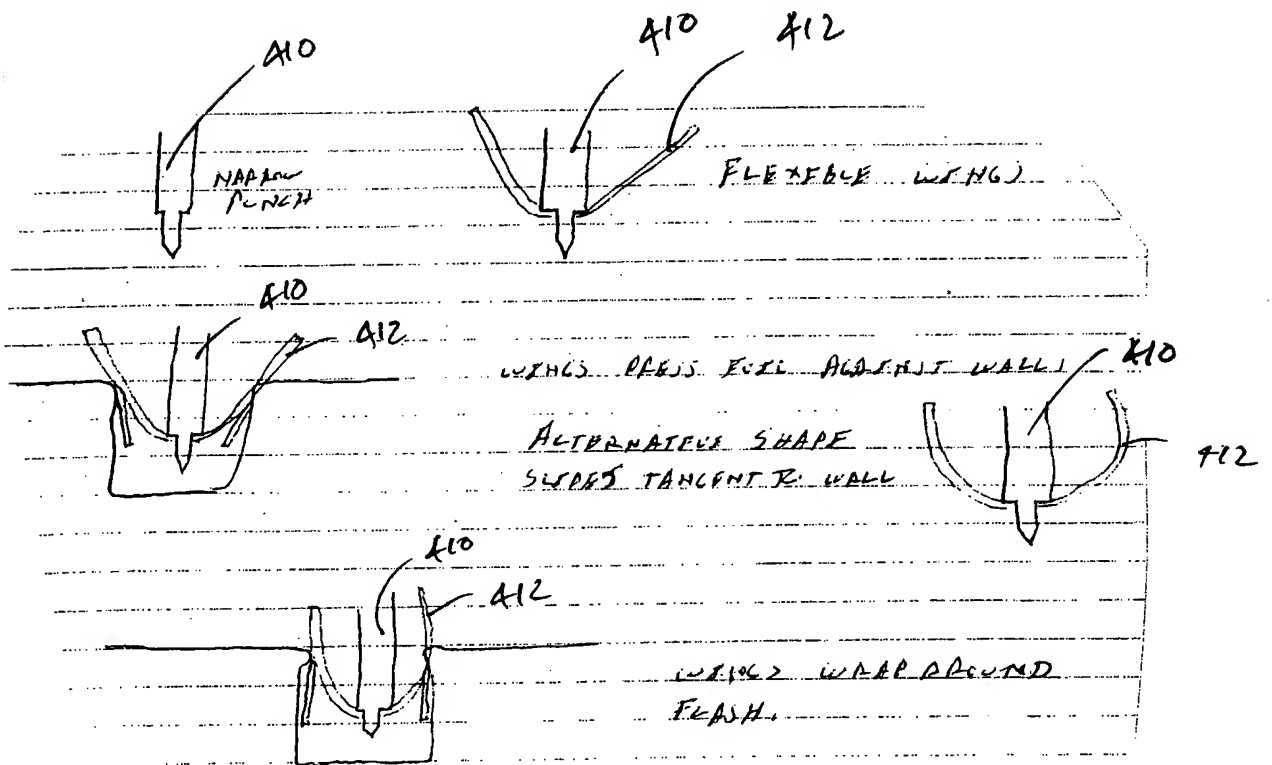 410
410 412
NARROW
PUNCH
FLEXIBLE WINGS
410
412
WINGS PRESS FOIL AGAINST WALLS
410
ALTERNATIVE SHAPE
SLOPES TANGENT TO WALL
412
410
412
WINGS WRAP AROUND
FLASH.